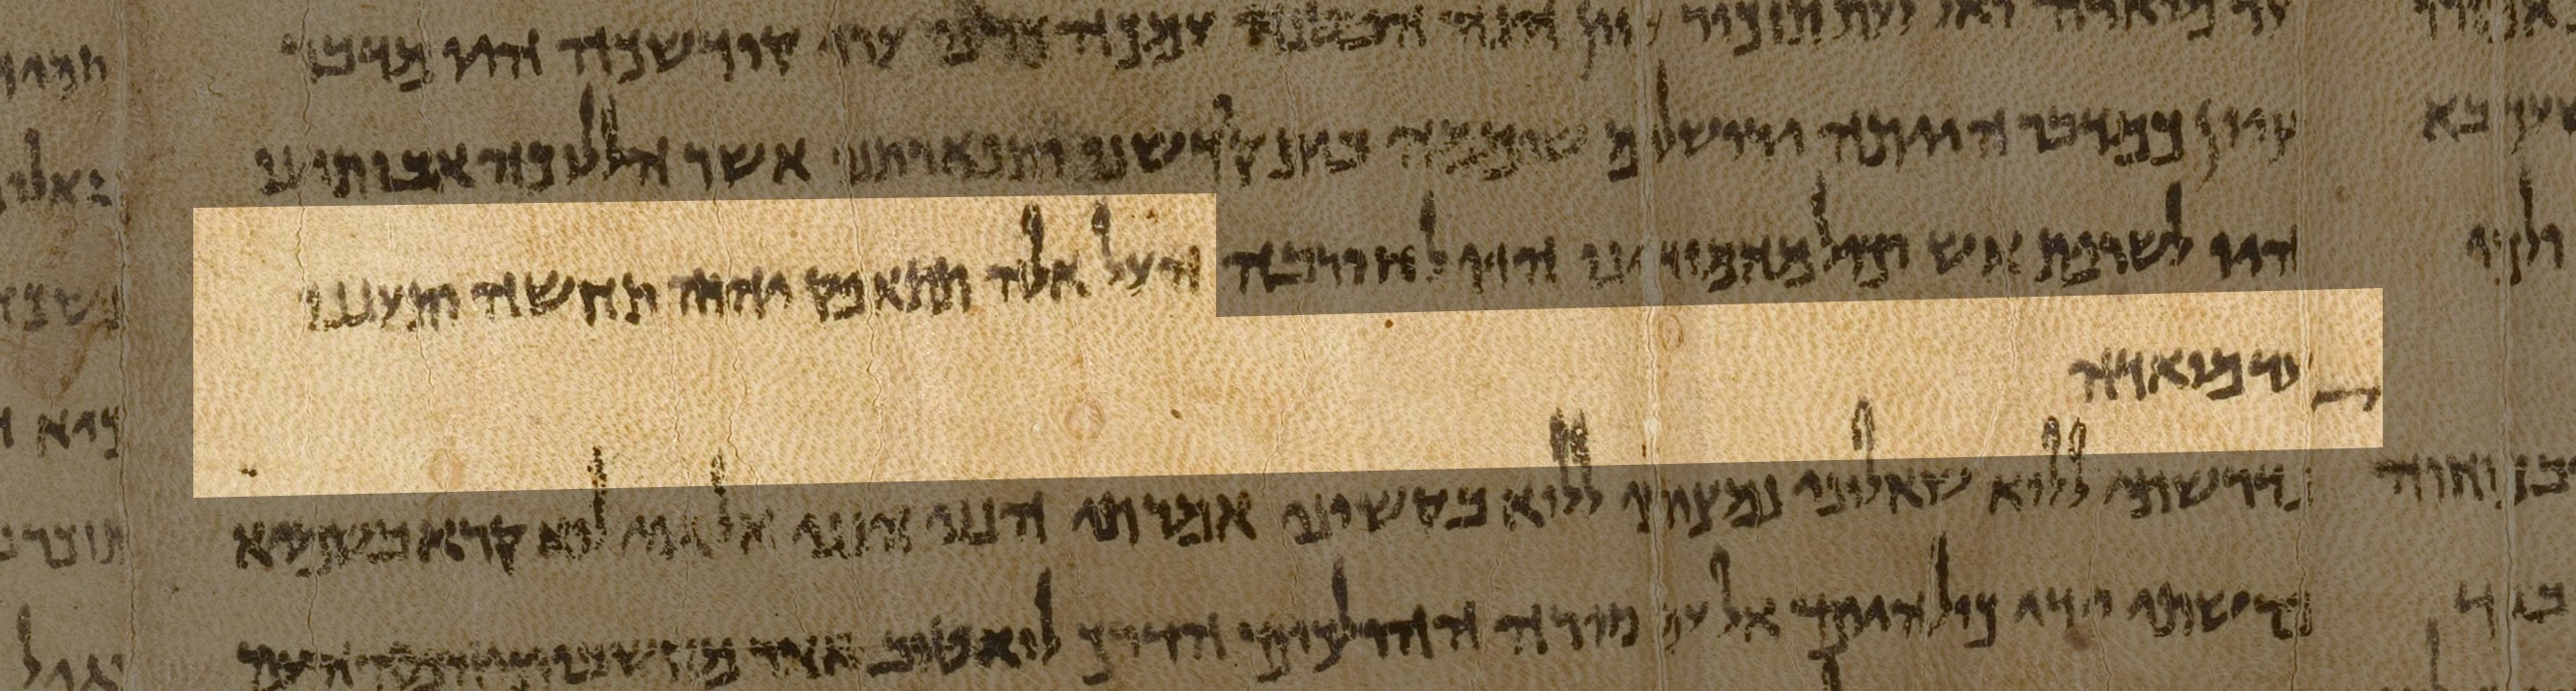 עד מואדה ואל לעת תזכור עוון הנה הבט נא עמכה כולנו ערי קודשכה היו מדבר
ציון כמדבר היתה וירושלם שוממה בית קדשנו ותפארתנו אשר הללוכה אבותינו
היו לשרפת אש וכול מחמדינו היו לחורבה העל אלה תתאפק יהוה תחשה ותעננו
עד מואדה
נדרשתי ללוא שאלוני נמצאתי ללוא בקשוני אמרתי הנני הנני אל גוי לוא קרא בשמי
פרשתי ידי כול היום אל עם סורה ההולכים הדרך לוא טוב אחר מחשבותיהמה העם